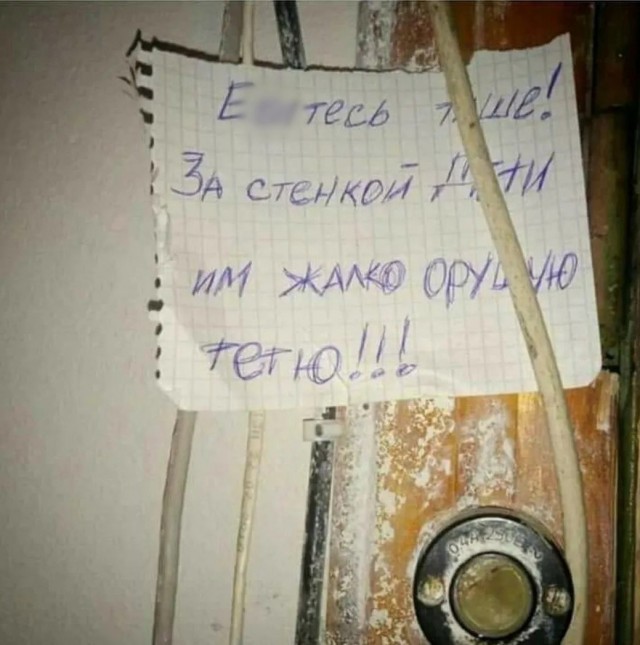 тише!
За стенкой Дети
им жалко орущую
тетю!!!